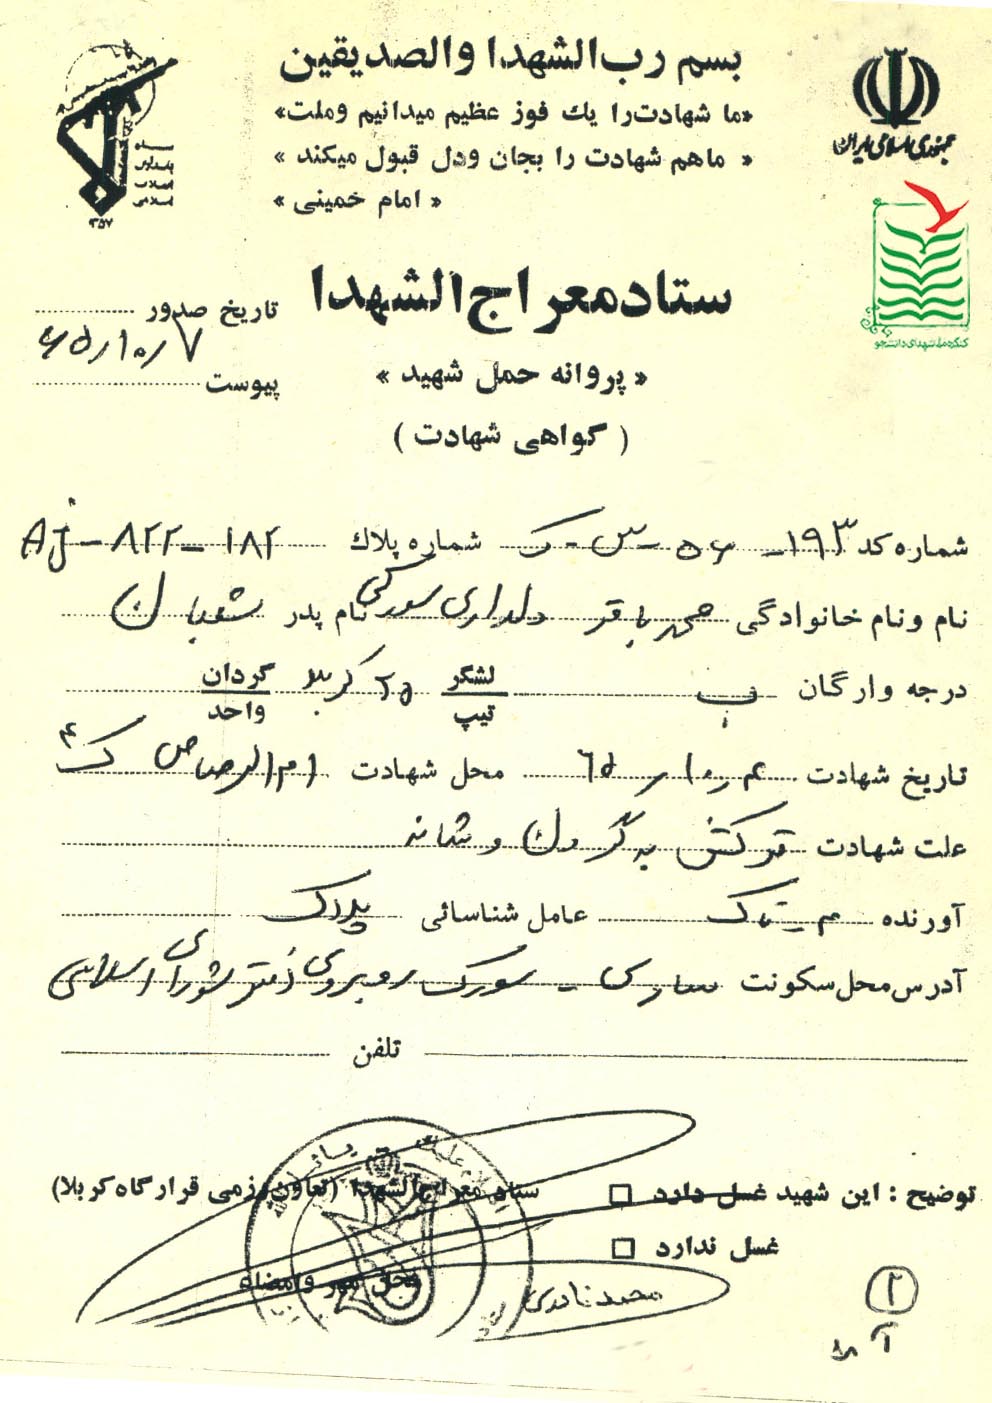 بسم رب الشهدا والصديقين
«ما شهادت را يك فوز عظيم ميدانيم وملت»
« ماهم شهادت را بجان ودل قبول ميكند »
« امام خمينى »
جمهوری اسلامی ایران
سپاه
پاسداران
انقلاب
اسلامی
۱۳۵۷
کنگره ملی شهدای دانشجو
ستاد معراج الشهدا
تاريخ صدور ۶۵/۱۰/۷
پيوست
« پروانه حمل شهيد »
( گواهى شهادت )
شماره كد ۱۹۳-۵۶-س-ک شماره پلاك AJ-۸۲۲-۱۸۲
نام ونام خانوادگى محمدباقر دلداری سورکی نام پدر شعبان
درجه وارگان ب لشگر تيپ ۲۵ کربلا گردان واحد
تاريخ شهادت ۴/۱۰/۶۵ محل شهادت ام الرصاص ک۴
علت شهادت ترکش به گردن و شانه
آورنده عامل شناسائى پلاک
آدرس محل سكونت ساری - سورک روبروی دفتر شورای اسلامی
تلفن
توضيح : اين شهيد غسل دارد □ ستاد معراج الشهدا (تعاون رزمى قرارگاه كربلا)
غسل ندارد □
محل مهر وامضاء
محمد نادری
۲